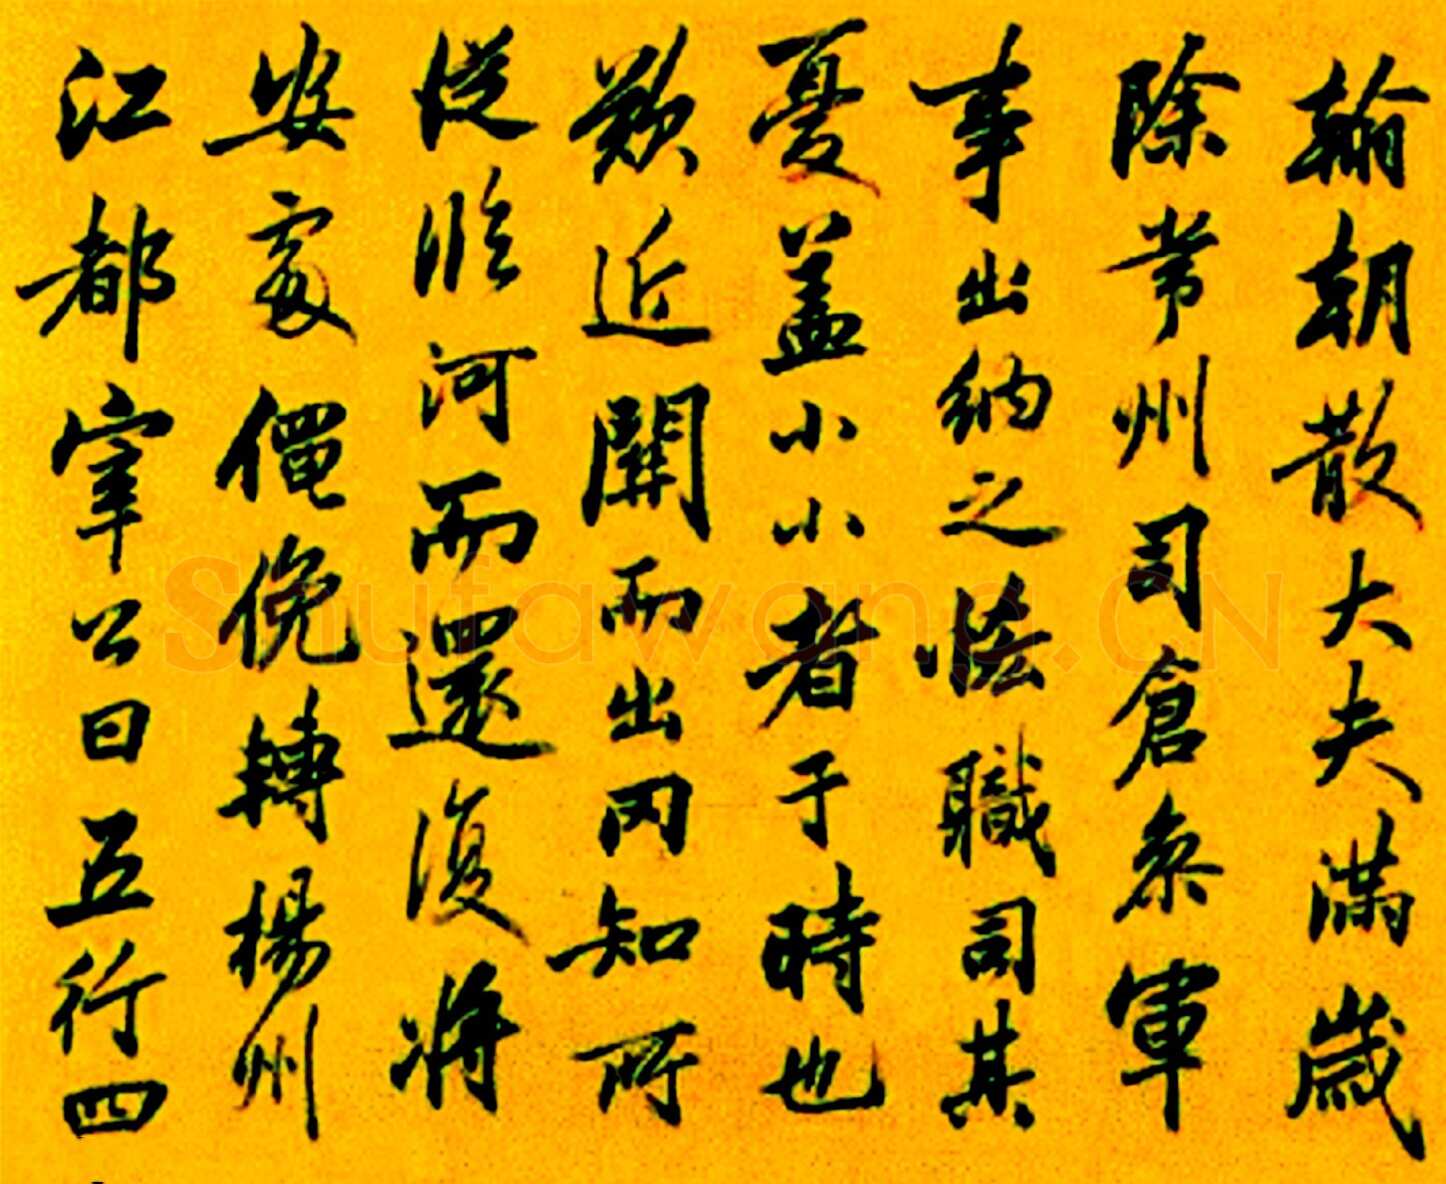 翰朝散大夫滿歲
除常州司倉叅軍
事出納之恡職司其
憂蓋小小者于時也
歎近關而出冈知所
從臨河而還復將
安處僶俛轉楊州
江都宰公曰五行四
Shufawang.CN